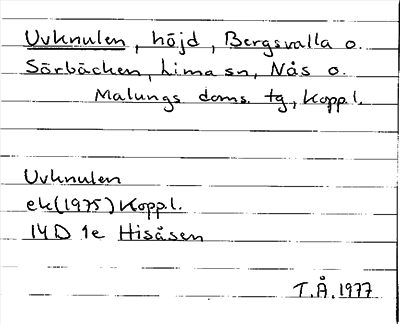 Uvknulen, höjd, Bergsvalla o.
Sörbäcken, Lima sn, Nås o.
Malungs doms. tg, Kopp.l.
Uvknulen
ek(1975) Kopp.l.
14D 1e Hisåsen
T.Å. 1977